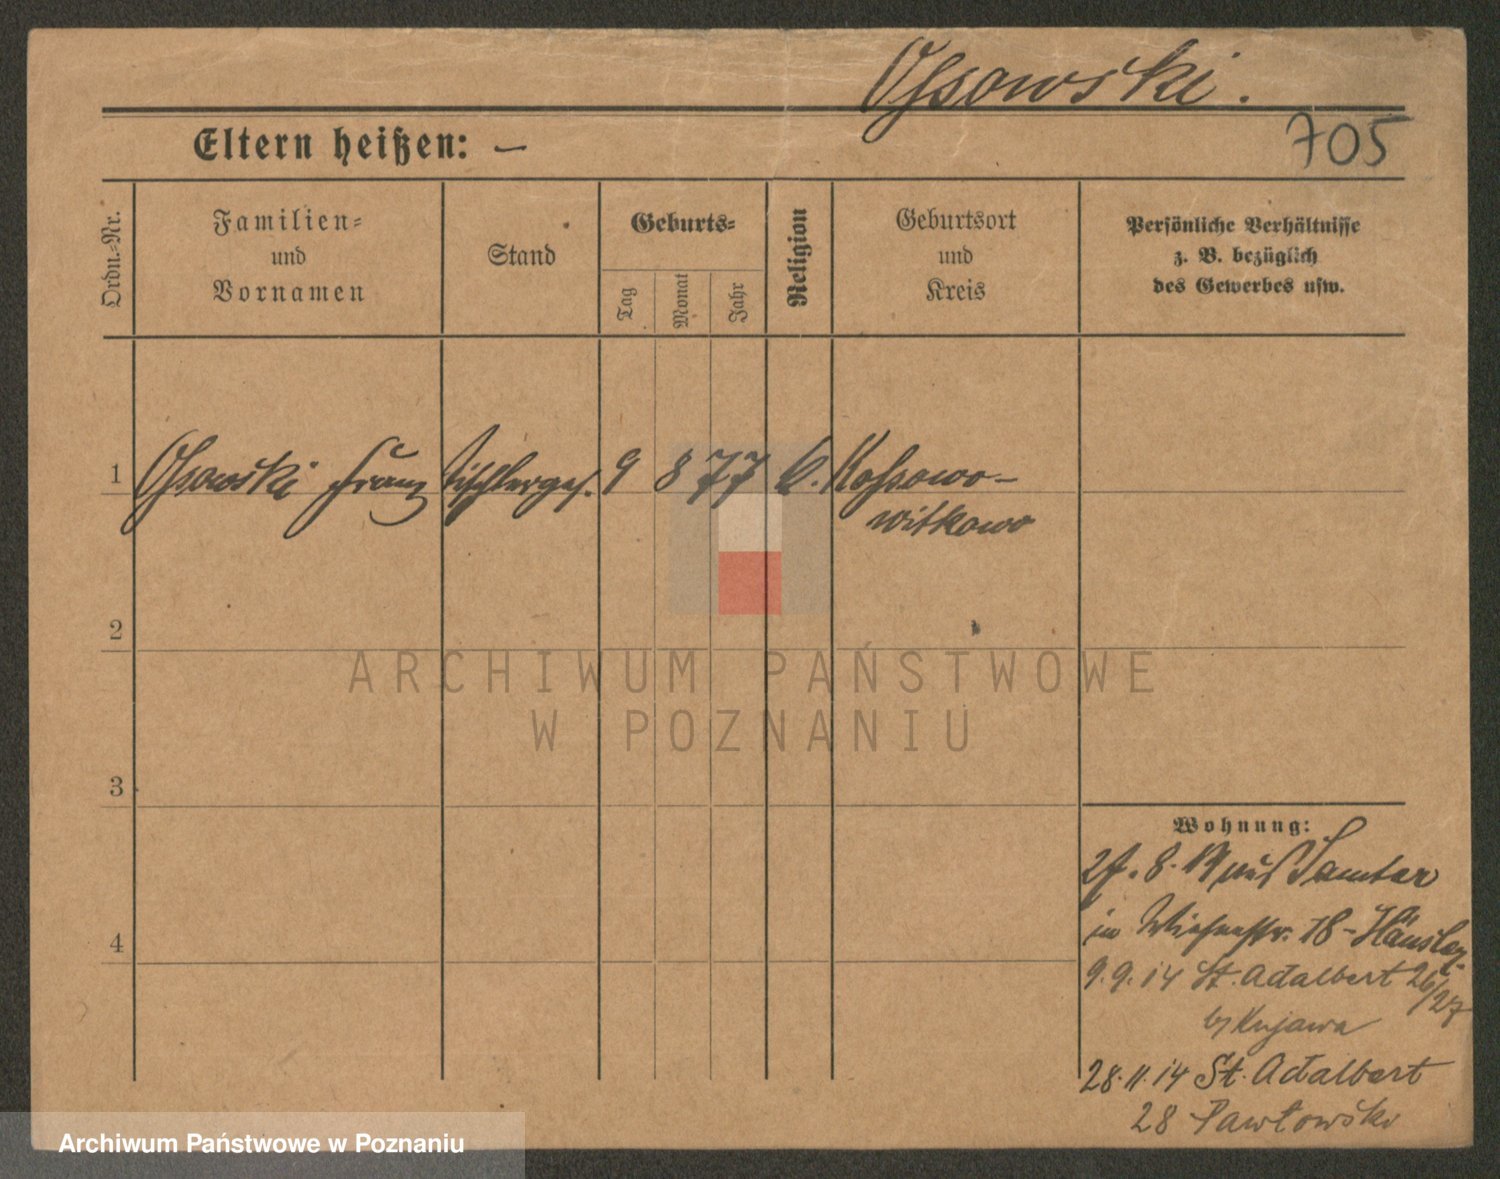 Ossowski.
705
Eltern heißen: —
Ordn.-Nr.
Familien-
und
Vornamen
Stand
Geburts-
Tag
Monat
Jahr
Religion
Geburtsort
und
Kreis
Persönliche Verhältnisse
z. B. bezüglich
des Gewerbes usw.
1 Ossowski Franz Tischlerges. 9 8 77 Kossowo-
Witkowo
2
3
4
Wohnung:
27. 8. aus Samter
in Wiesenstr. 18-
9.9.14 St. Adalbert 26/27
b/ Kujawa
28.11.14 St. Adalbert
28 Pawłowski
ARCHIWUM PAŃSTWOWE
W POZNANIU
Archiwum Państwowe w Poznaniu